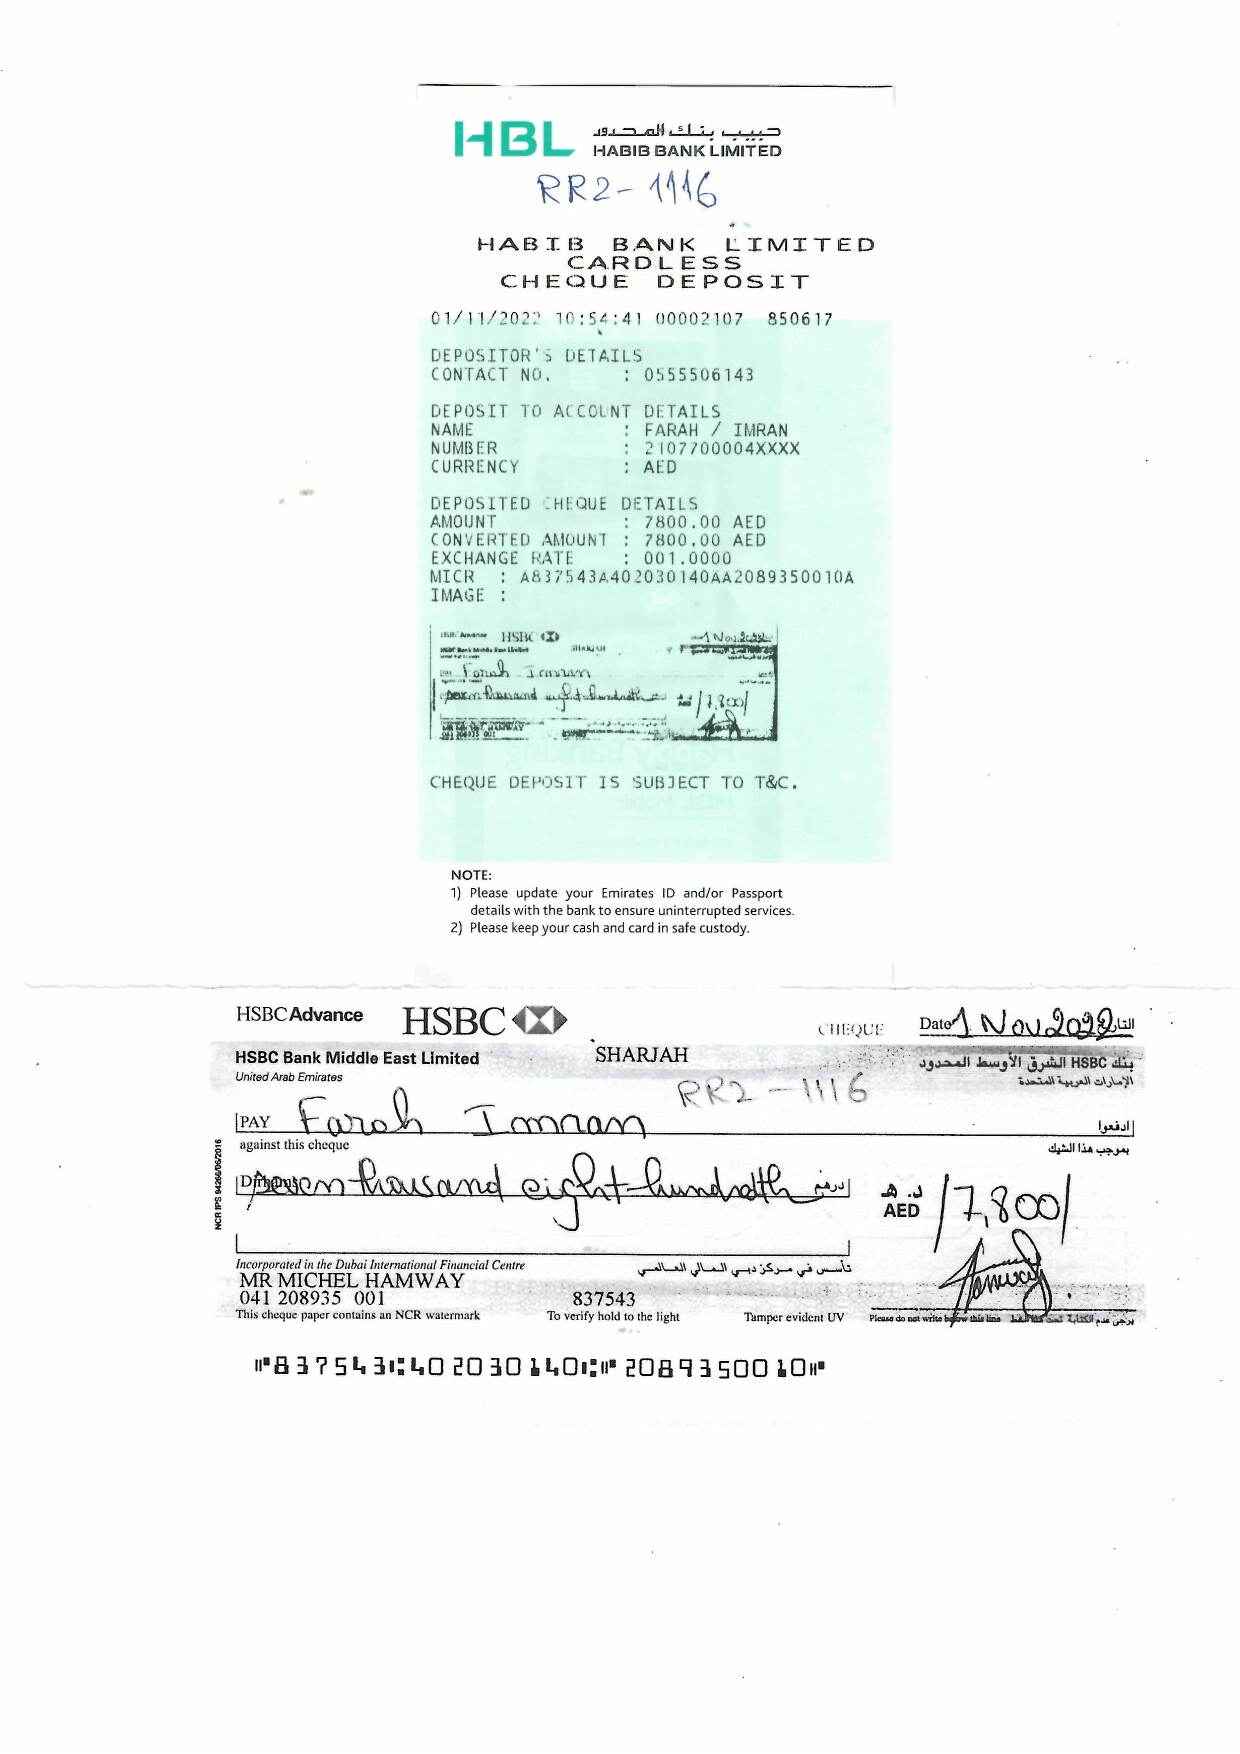 HBL حبيب بنك المحدود
HABIB BANK LIMITED
RR2-1116
HABIB BANK LIMITED
CARDLESS
CHEQUE DEPOSIT
01/11/2022 10:54:41 00002107 850617
DEPOSITOR'S DETAILS
CONTACT NO. : 0555506143
DEPOSIT TO ACCOUNT DETAILS
NAME : FARAH / IMRAN
NUMBER : 2107700004XXXX
CURRENCY : AED
DEPOSITED CHEQUE DETAILS
AMOUNT : 7800.00 AED
CONVERTED AMOUNT : 7800.00 AED
EXCHANGE RATE : 001.0000
MICR : A837543A402030140AA2089350010A
IMAGE :
HSBC Advance HSBC 1 Nov 2022
HSBC Bank Middle East Limited SHARJAH
Farah Imran
thousand eight-hundredth 7,800/
MR MICHEL HAMWAY
041 208935 001
CHEQUE DEPOSIT IS SUBJECT TO T&C.
NOTE:
1) Please update your Emirates ID and/or Passport
details with the bank to ensure uninterrupted services.
2) Please keep your cash and card in safe custody.
HSBC Advance HSBC CHEQUE Date 1 Nov 2022 التاريخ
HSBC Bank Middle East Limited SHARJAH بنك HSBC الشرق الأوسط المحدود
United Arab Emirates الإمارات العربية المتحدة
RR2-1116
PAY Farah Imran ادفعوا
against this cheque بموجب هذا الشيك
seven thousand eight-hundredth درهم د.هـ
AED /7,800/
NCR IPS 94266/06/2016
Incorporated in the Dubai International Financial Centre تأسس في مركز دبي المالي العالمي
MR MICHEL HAMWAY Hamway
041 208935 001 837543
This cheque paper contains an NCR watermark To verify hold to the light Tamper evident UV Please do not write below this line يرجى عدم الكتابة تحت هذا الخط
⑈837543⑆402030140⑆⑈2089350010⑈